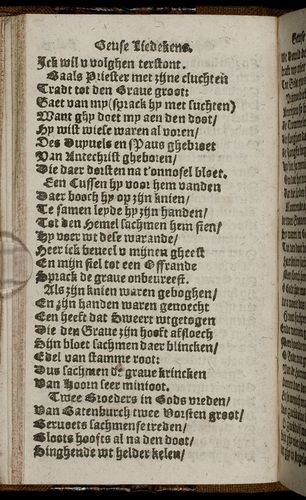 Geuse Liedekens.
Ick wil v volghen terstont.
Baals Priester met zijne cluchten
Tradt tot den Graue groot:
Gaet van my (sprack hy met suchten)
Want ghy doet my aen den doot/
Hy wist wiese waren al voren/
Des Duyuels en sPaus ghebroet
Van Antechrist gheboren/
Die daer dorsten na t'onnosel bloet.
Een Cussen hy voor hem vanden
Daer booch hy op zijn knien/
Te samen leyde hy zijn handen/
Tot den Hemel sachmen hem sien/
Hy voer wt dese warande/
Heer ick beueel v mijnen gheest
En mijn siel tot een Offrande
Sprack de graue onbeureest.
Als zijn knien waren geboghen/
En zijn handen waren geuoecht
Een heeft dat Sweert wtgetogen
Die den Graue zijn hooft afsloech
Sijn bloet sachmen daer blincken/
Edel van stamme root:
Dus sachmen de graue krincken
Van Hoorn seer minioot.
Twee Broeders in Gods vreden/
Van Batenburch twee Vorsten groot/
Beruoets sachmense treden/
Bloots hoofts al na den doot/
Singhende wt helder kelen/